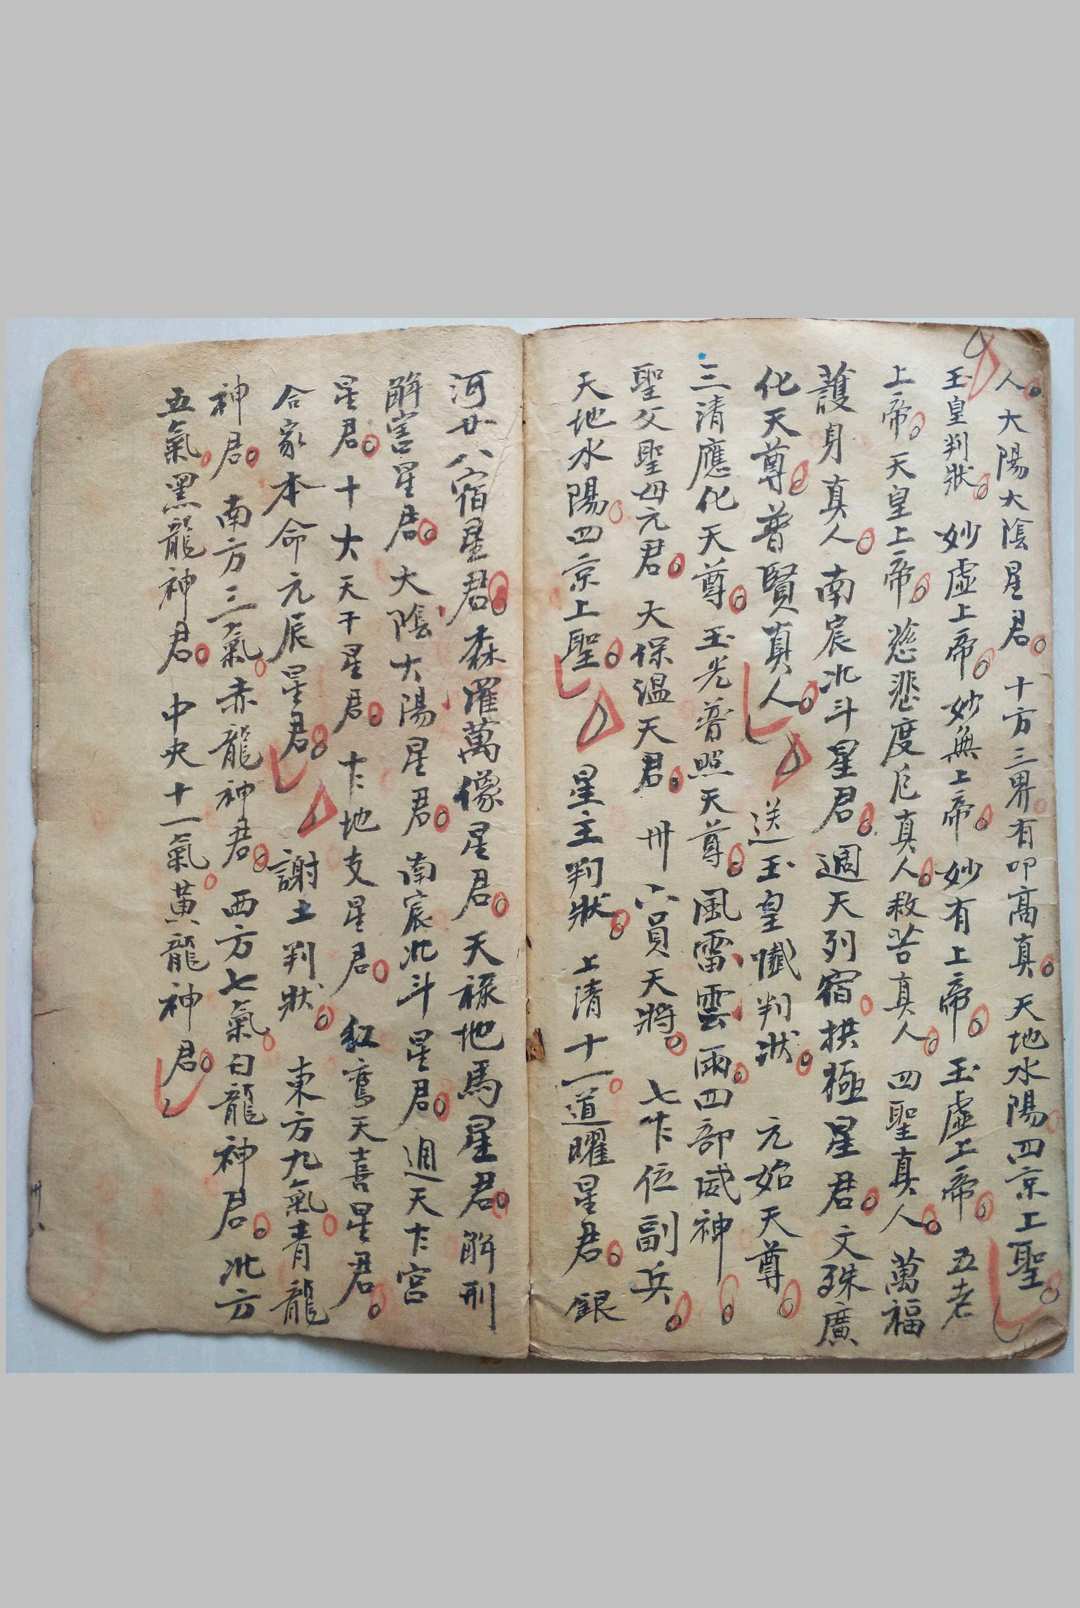 人大陽大陰星君十方三界有叩高真天地水陽四京上聖
玉皇判狀 妙虛上帝妙無上帝妙有上帝玉虛上帝五老
上帝天皇上帝慈悲度厄真人救苦真人四聖真人萬福
護身真人南宸北斗星君週天列宿拱極星君文殊廣
化天尊普賢真人 送玉皇懺判狀 元始天尊
三清應化天尊玉光普照天尊風雷雲雨四部威神
聖父聖母元君天保溫天君卅六員天將七十位副兵
天地水陽四京上聖 星主判狀 上清十一道曜星君 銀
河廿八宿星君森羅萬像星君天祿地馬星君解刑
解害星君大陰大陽星君南宸北斗星君週天宮
星君十大天干星君地支星君紅鸞天喜星君
合家本命元辰星君 謝土判狀 東方九氣青龍
神君南方三氣赤龍神君西方七氣白龍神君北方
五氣黑龍神君中央十一氣黃龍神君